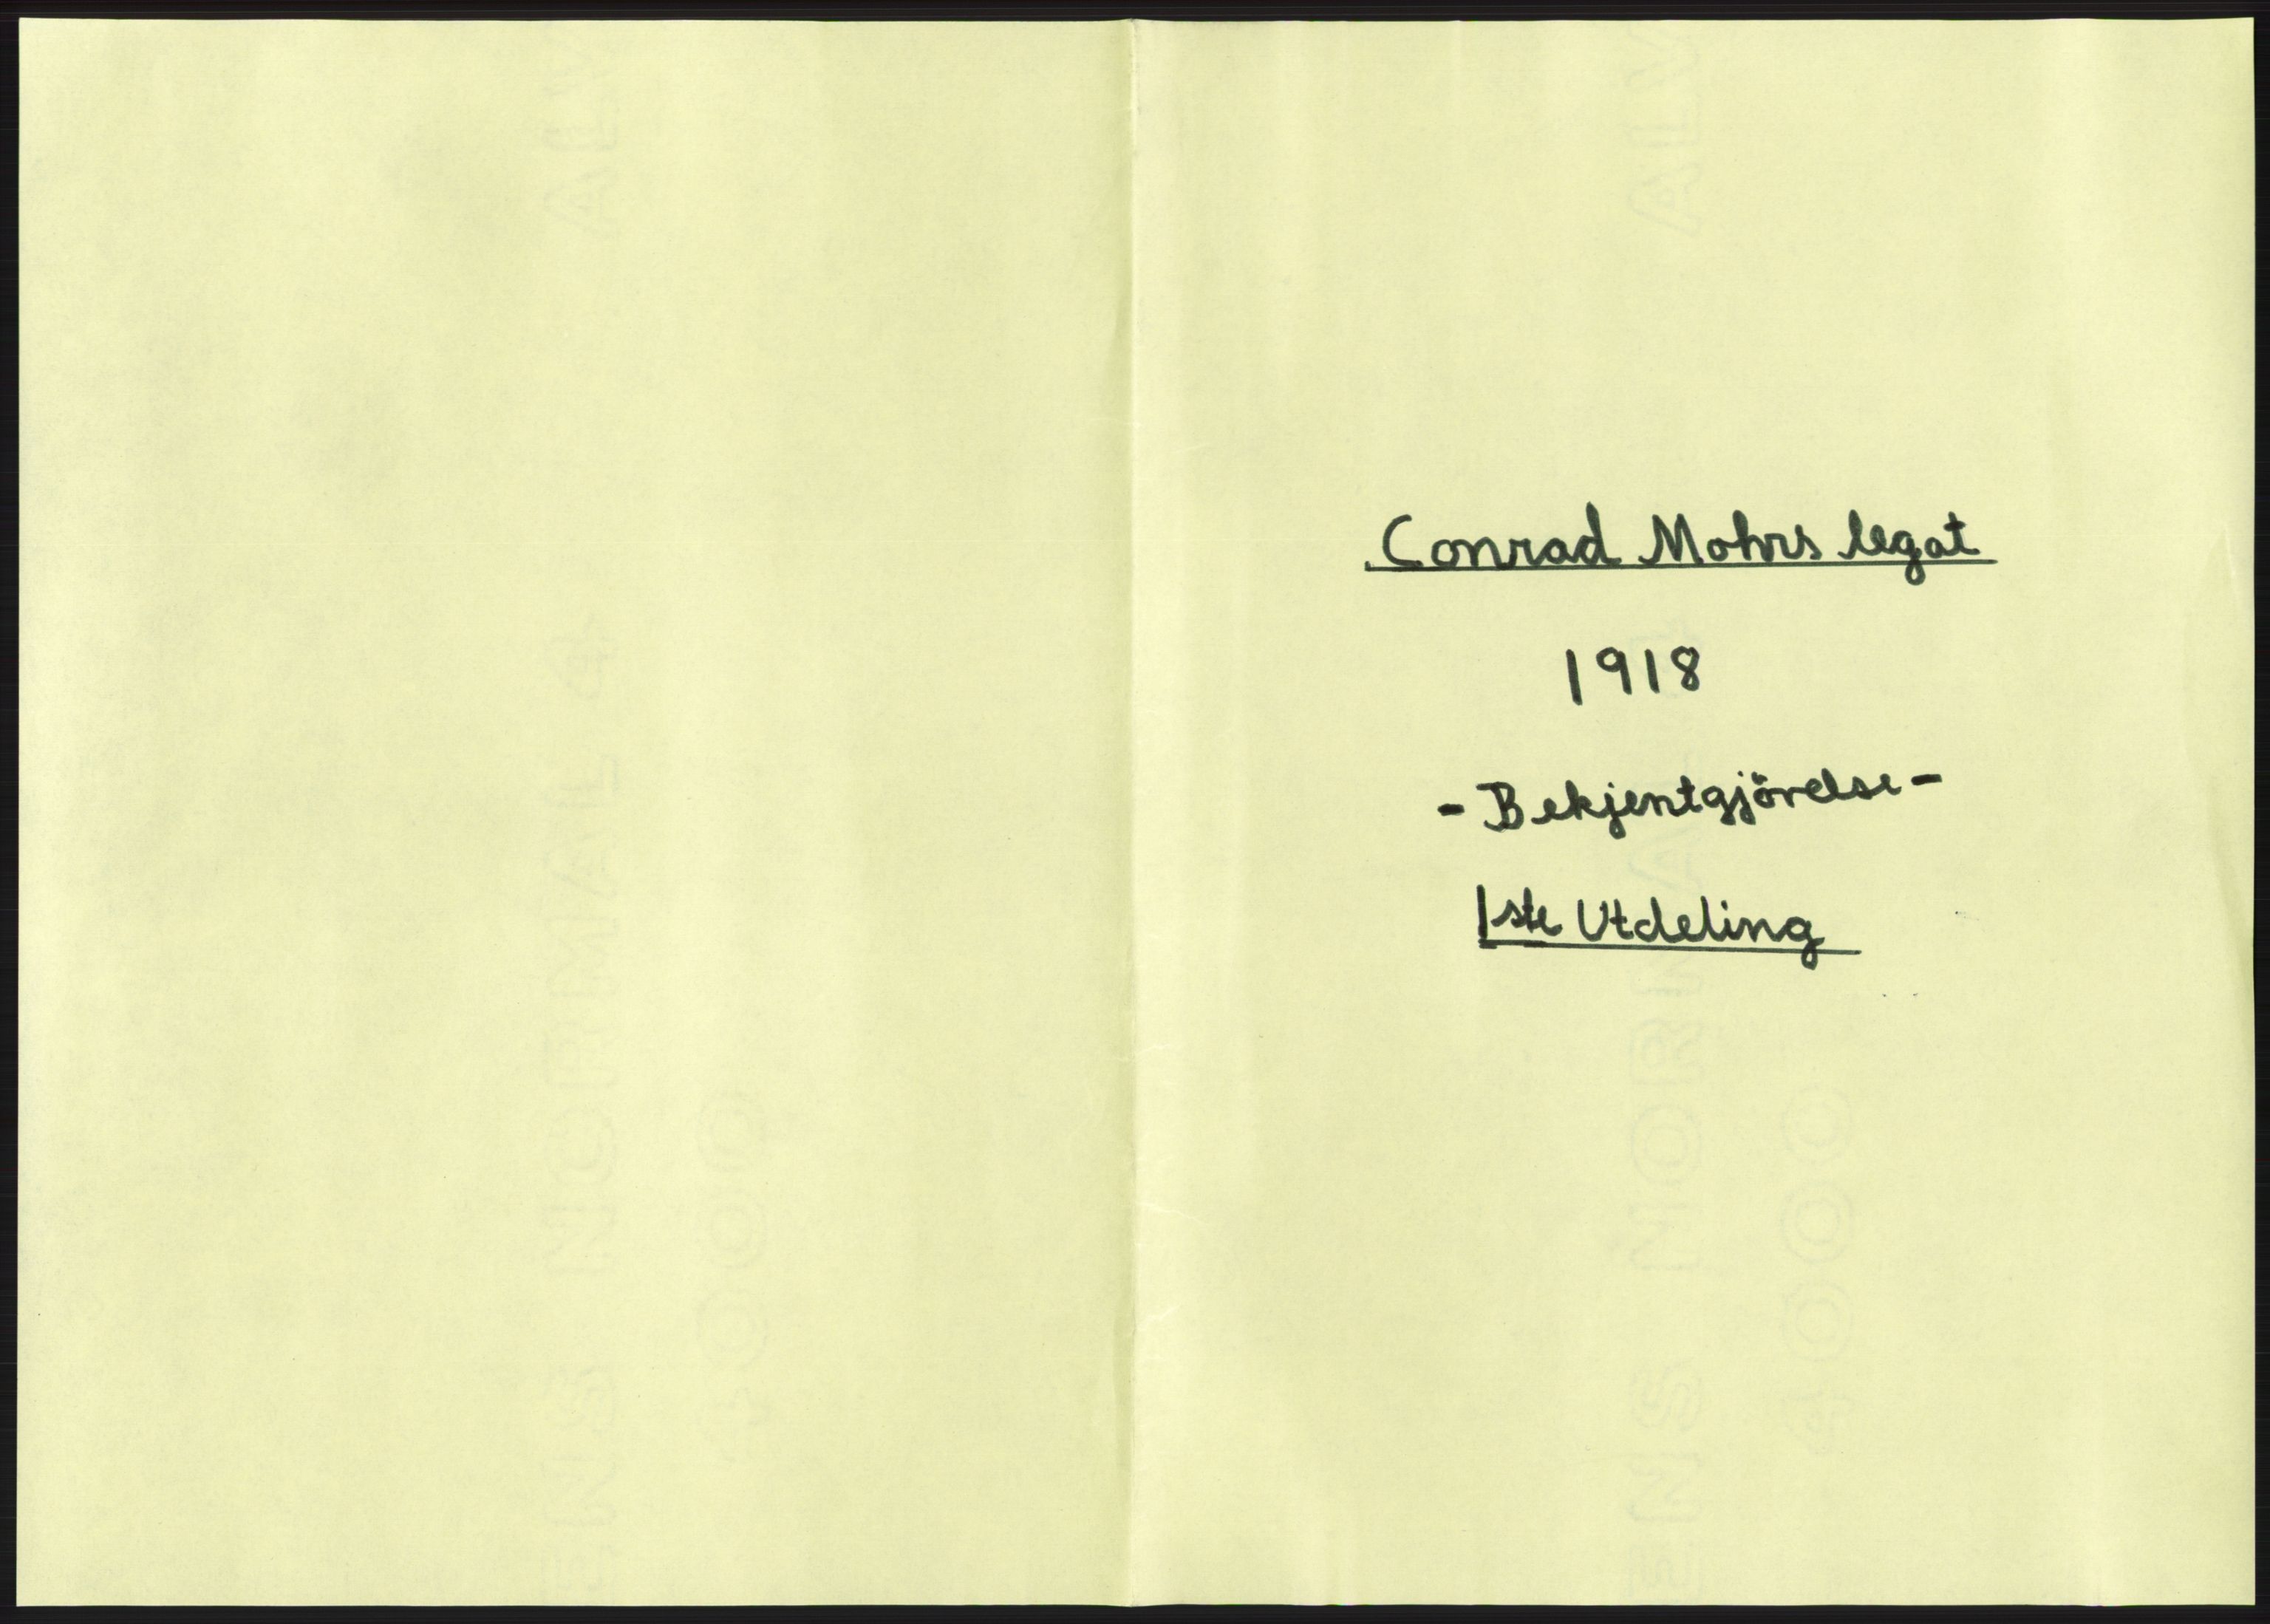 Conrad Mohrs legat
1918
- Bekjentgjörelse -
1ste Utdeling